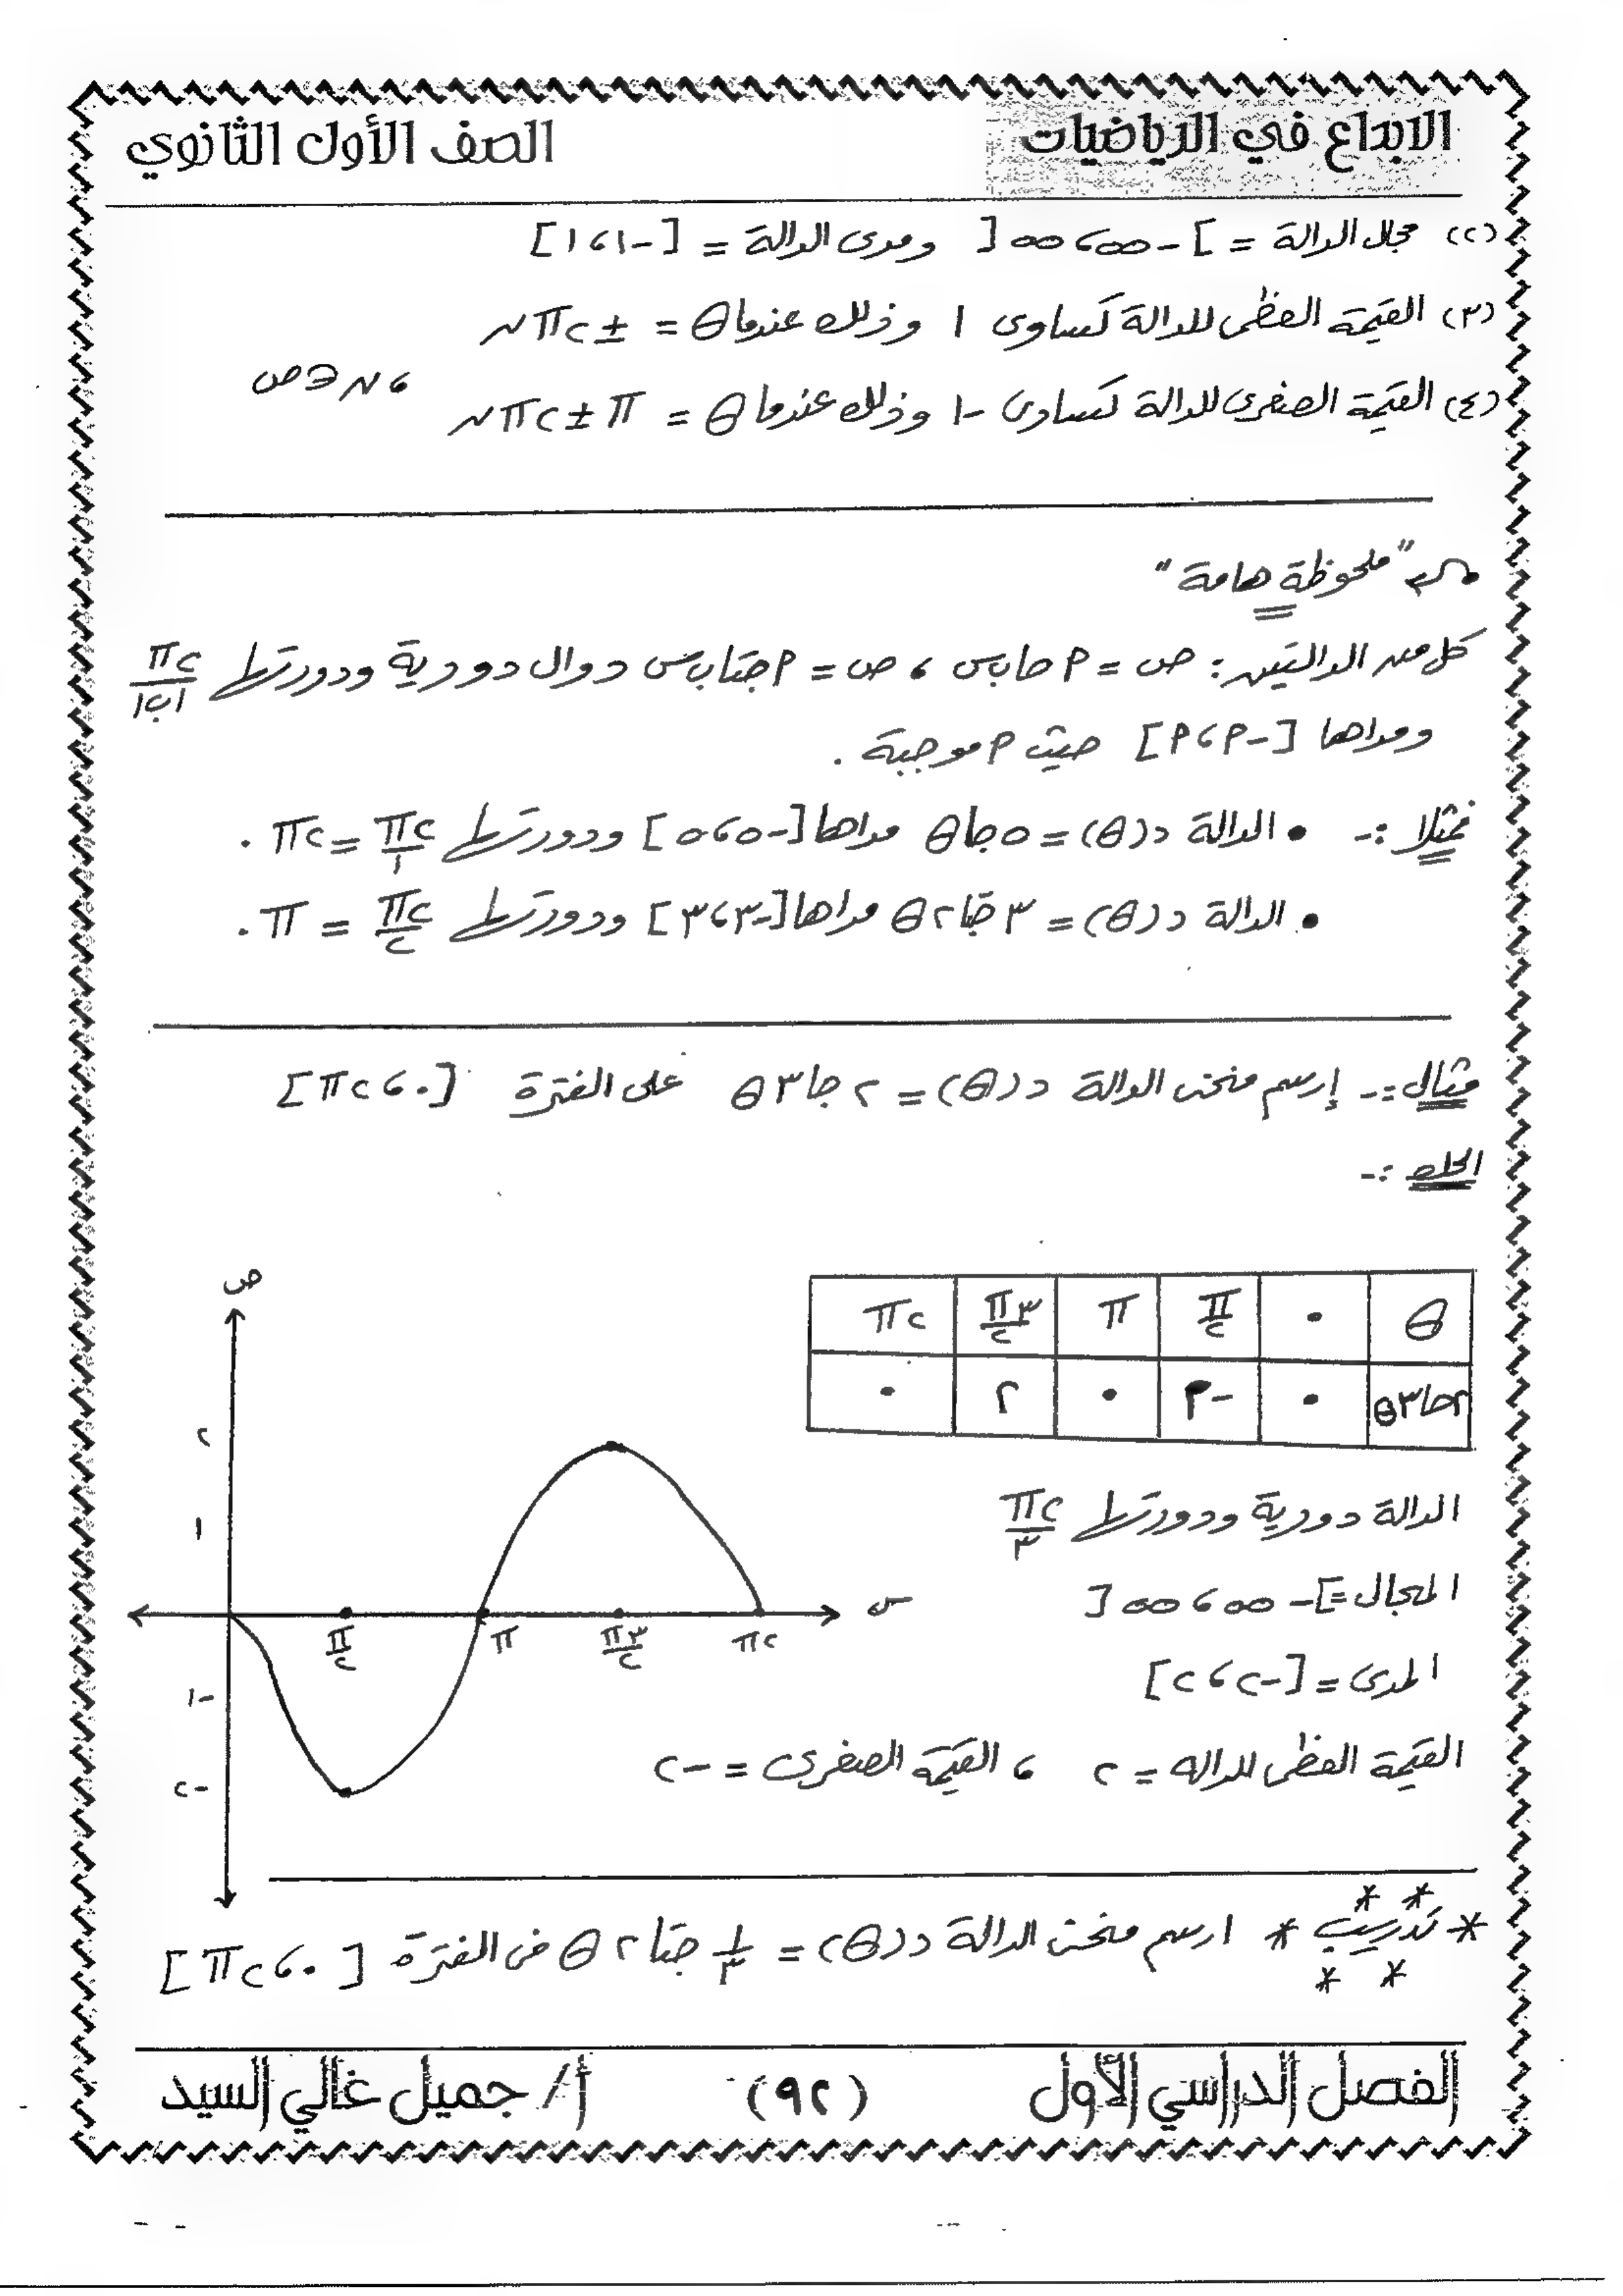 الابداع في الرياضيات
الصف الأول الثانوي
(٢) مجال الدالة = ]-∞ ، ∞[ ومدى الدالة = [-١ ، ١]
(٣) القيمة العظمى للدالة تساوى ١ وذلك عندما θ = ± ٢π ن
(٤) القيمة الصغرى للدالة تساوى -١ وذلك عندما θ = π ± ٢π ن
، ن ∈ ص
"ملحوظة هامة"
كل من الدالتين : ص = ٢ حا ب س ، ص = ٢ جتا ب س دوال دورية ودورتها ٢π/|ب|
ومداها [-٢ ، ٢] حيث ٢ موجبة .
فمثلا :- • الدالة د(θ) = ٥ جا θ مداها [-٥ ، ٥] ودورتها ٢π/١ = ٢π .
• الدالة د(θ) = ٣ جتا ٢ θ مداها [-٣ ، ٣] ودورتها ٢π/٢ = π .
مثال :- إرسم منحنى الدالة د(θ) = ٢ جا ٣ θ على الفترة [٠ ، ٢π]
الحل :-
θ ٠ π/٢ π ٣π/٢ ٢π
٢حا٣θ ٠ -٢ ٠ ٢ ٠
ص
٢
١
-١
-٢
π/٢ π ٣π/٢ ٢π
س
الدالة دورية ودورتها ٢π/٣
المجال = ]-∞ ، ∞[
المدى = [-٢ ، ٢]
القيمة العظمى للداله = ٢ ، القيمة الصغرى = -٢
* تدريب * ارسم منحنى الدالة د(θ) = ١/٣ جتا ٢ θ فى الفترة [٠ ، ٢π]
الفصل الدراسي الأول
(٩٢)
أ/ جميل غالي السيد